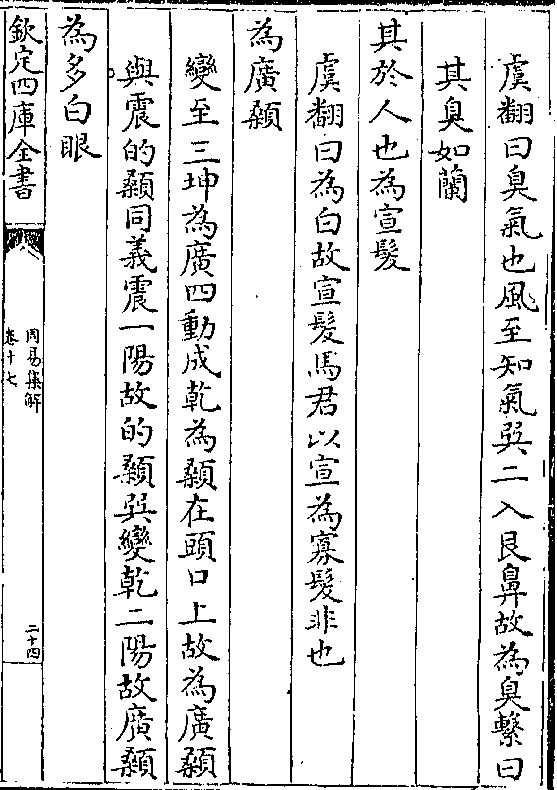 虞翻曰臭氣也風至知氣巽二入艮鼻故為臭繫曰
其臭如蘭
其於人也為宣髮
虞翻曰為白故宣髮馬君以宣為寡髮非也
為廣顙
變至三坤為廣四動成乾為顙在頭口上故為廣顙
與震的顙同義震一陽故的顙巽變乾二陽故廣顙
為多白眼
欽定四庫全書
周易集解
卷十七
二十四